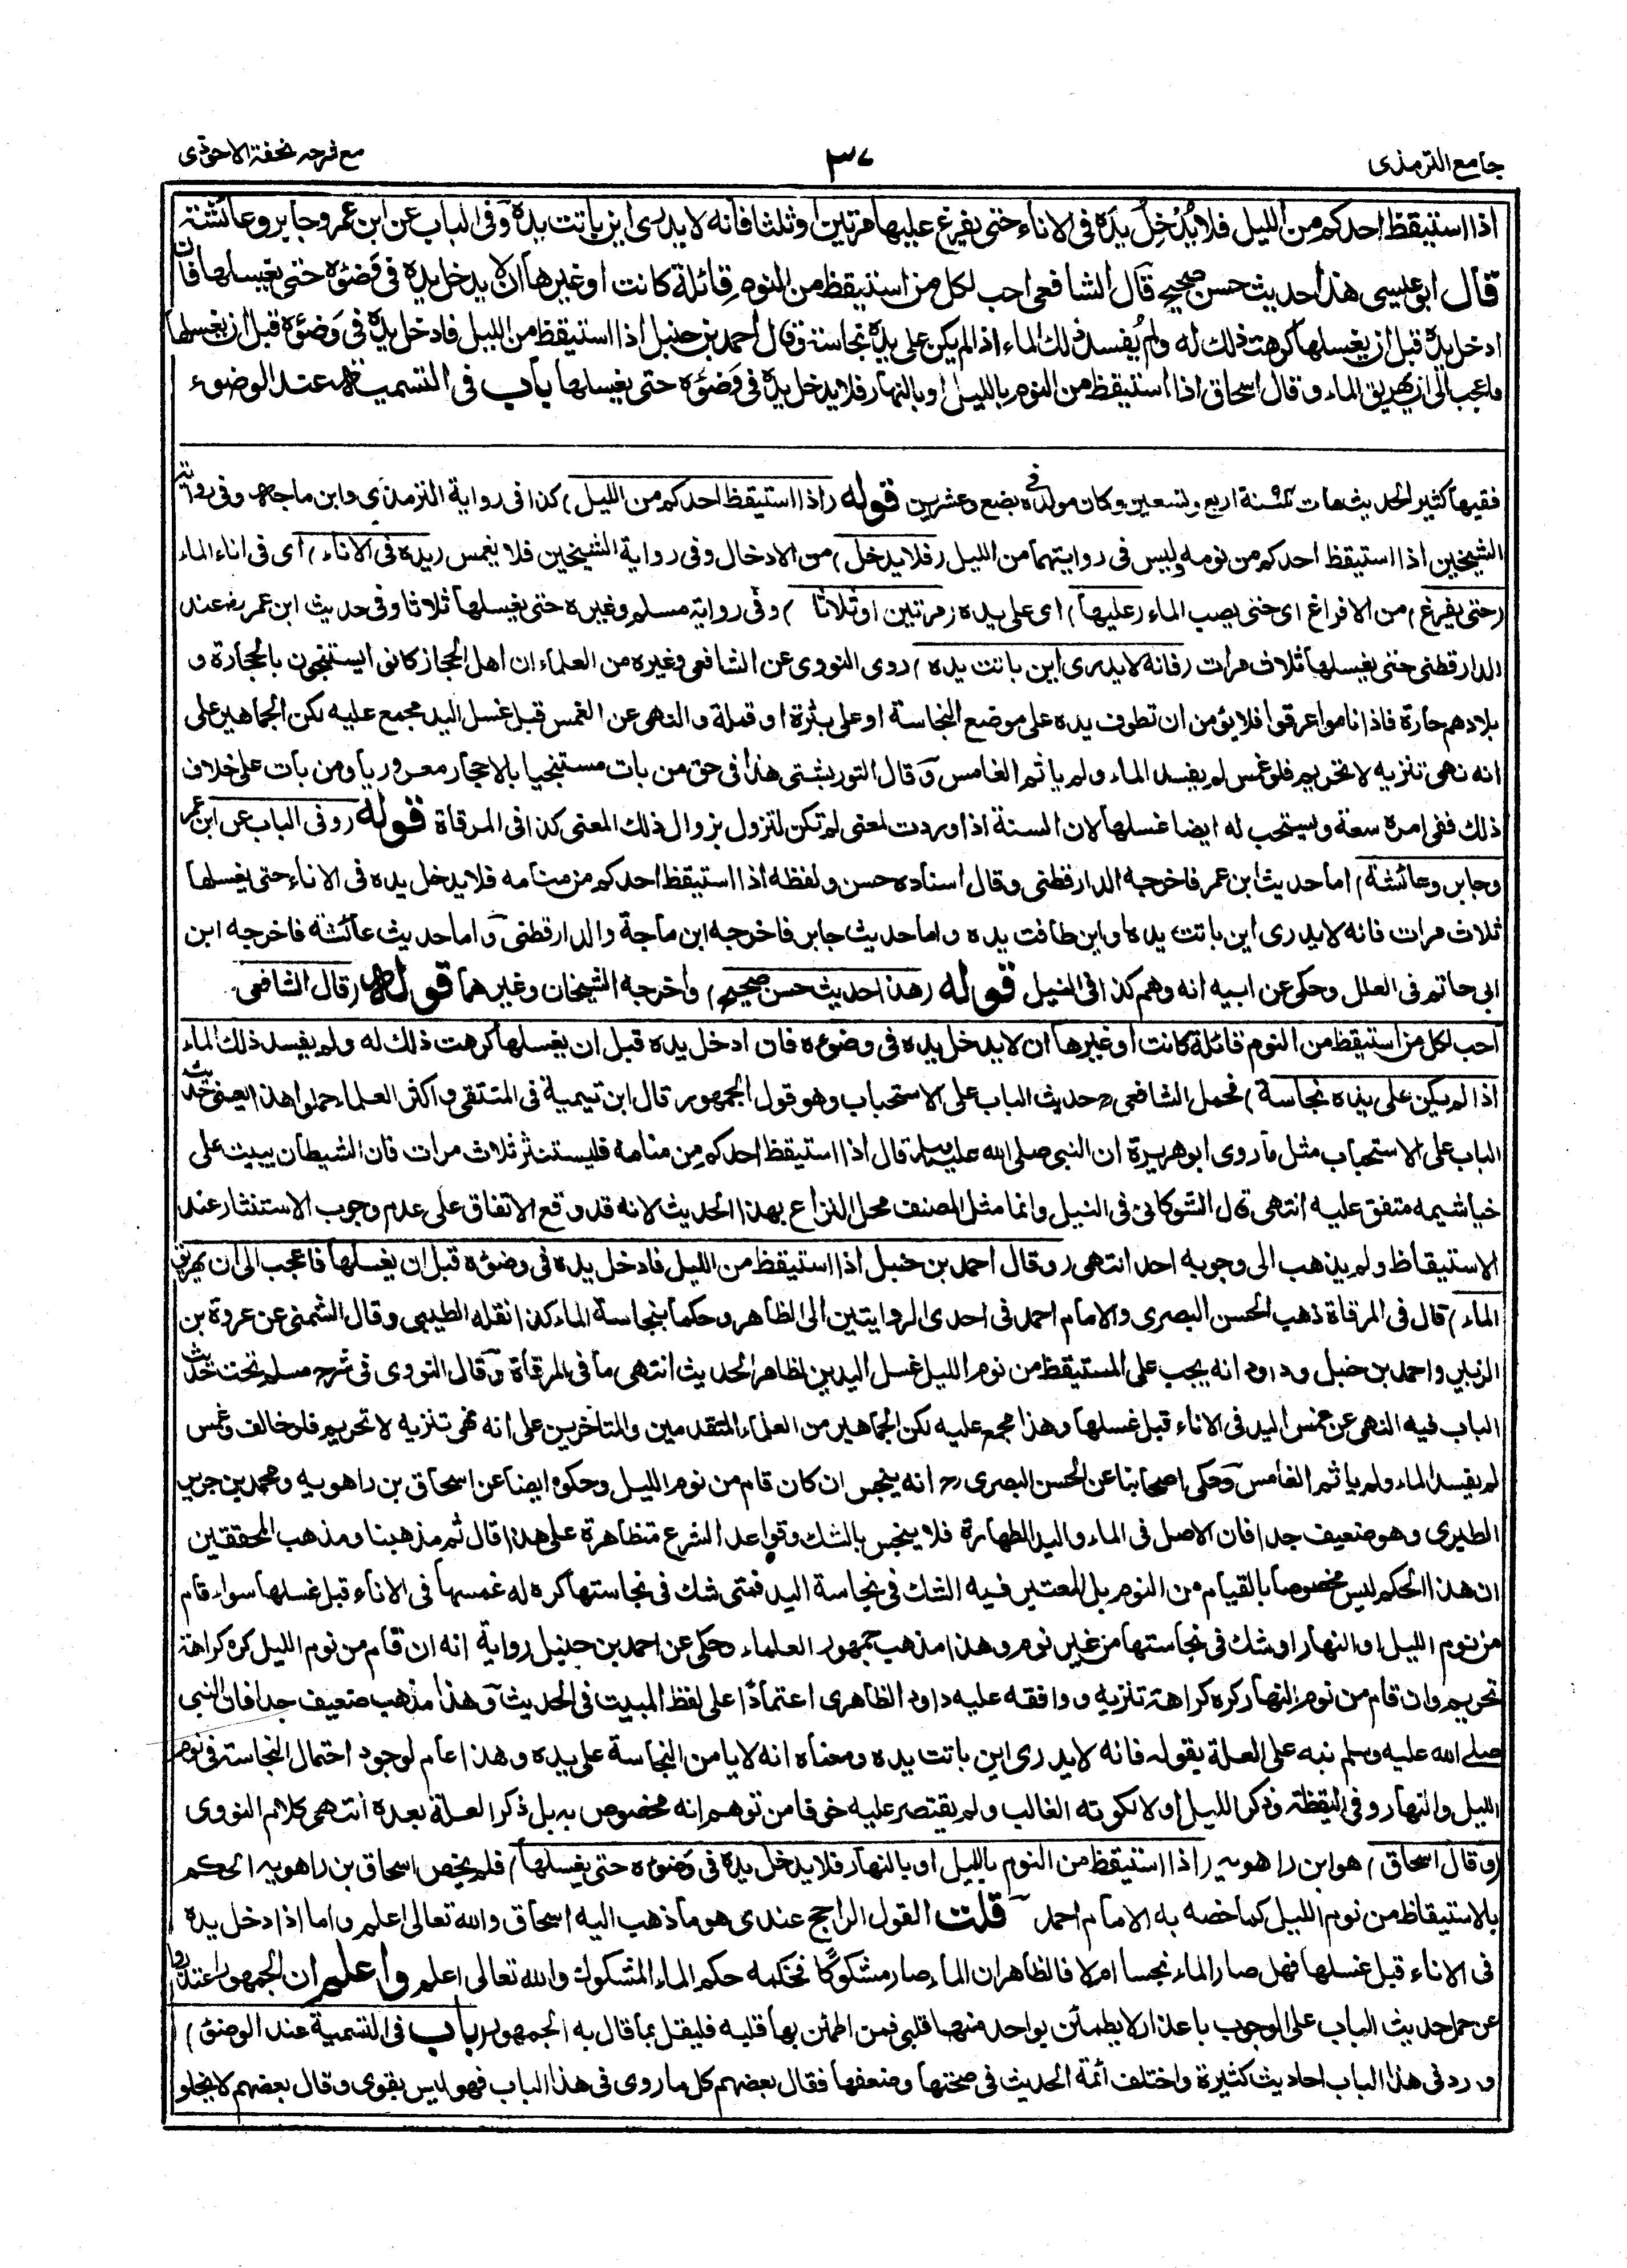 جامع الترمذى
٣٧
مع شرحه تحفة الاحوذى
اذا استيقظ احدكم من الليل فلا يُدْخِلْ يدَه فى الاناء حتى يفرغ عليها مرتين او ثلثا فانه لا يدرى اين باتت يده وفى الباب عن ابن عمر وجابر وعائشة
قال ابو عيسى هذا حديث حسن صحيح قال الشافعى احب لكل من استيقظ من النوم قائلة كانت او غيرها ان لا يدخل يده فى وَضوئه حتى يغسلها فان
ادخل يده قبل ان يغسلها كرهت ذلك له ولم يُفسد ذلك الماء اذا لم يكن على يده نجاسة وقال احمد بن حنبل اذا استيقظ من الليل فادخل يده فى وَضوئه قبل ان يغسلها
فاعجب الىّ ان يهريق الماء وقال اسحاق اذا استيقظ من النوم بالليل او بالنهار فلا يدخل يده فى وَضوئه حتى يغسلها باب فى التسمية عند الوضوء
فقيها كثير الحديث مات سنة اربع وتسعين وكان مولده فى بضع وعشرين قوله (اذا استيقظ احدكم من الليل) كذا فى رواية الترمذى وابن ماجه وفى رواية
الشيخين اذا استيقظ احدكم من نومه وليس فى روايتهما من الليل (فلا يدخل) من الادخال وفى رواية الشيخين فلا يغمس (يده فى الاناء) اى فى اناء الماء
(حتى يفرغ) من الافراغ اى حتى يصب الماء (عليها) اى على يده (مرتين او ثلاثا) وفى رواية مسلم وغيره حتى يغسلها ثلاثا وفى حديث ابن عمر رض عند
الدارقطنى حتى يغسلها ثلاث مرات (فانه لا يدرى اين باتت يده) روى النووى عن الشافعى وغيره من العلماء ان اهل الحجاز كانوا يستنجون بالحجارة و
بلادهم حارة فاذا ناموا عرقوا فلا يؤمن ان تطوف يده على موضع النجاسة او على بثرة او قملة والنهى عن الغمس قبل غسل اليد مجمع عليه لكن الجماهير على
انه نهى تنزيه لا تحريم فلو غمس لم يفسد الماء ولم ياثم الغامس وقال التوربشتى هذا فى حق من بات مستنجيا بالاحجار معروريا ومن بات على خلاف
ذلك ففى امره سعة ويستحب له ايضا غسلها لان السنة اذا وردت لمعنى لم تكن لتزول بزوال ذلك المعنى كذا فى المرقاة قوله (وفى الباب عن ابن عمر
وجابر وعائشة) اما حديث ابن عمر فاخرجه الدارقطنى وقال اسناده حسن ولفظه اذا استيقظ احدكم من منامه فلا يدخل يده فى الاناء حتى يغسلها
ثلاث مرات فانه لا يدرى اين باتت يده واين طافت يده واما حديث جابر فاخرجه ابن ماجة والدارقطنى واما حديث عائشة فاخرجه ابن
ابى حاتم فى العلل وحكى عن ابيه انه وهم كذا فى النيل قوله (هذا حديث حسن صحيح) واخرجه الشيخان وغيرهما قوله (قال الشافعى
احب لكل من استيقظ من النوم قائلة كانت او غيرها ان لا يدخل يده فى وضوءه فان ادخل يده قبل ان يغسلها كرهت ذلك له ولم يفسد ذلك الماء
اذا لم يكن على يده نجاسة) فحمل الشافعى رح حديث الباب على الاستحباب وهو قول الجمهور قال ابن تيمية فى المنتقى واكثر العلماء حملوا هذا يعنى حديث
الباب على الاستحباب مثل ما روى ابو هريرة ان النبى صلى الله عليه وسلم قال اذا استيقظ احدكم من منامه فليستنثر ثلاث مرات فان الشيطان يبيت على
خياشيمه متفق عليه انتهى قال الشوكانى فى النيل وانما مثل المصنف محل النزاع بهذا الحديث لانه قد وقع الاتفاق على عدم وجوب الاستنثار عند
الاستيقاظ ولم يذهب الى وجوبه احد انتهى (وقال احمد بن حنبل اذا استيقظ من الليل فادخل يده فى وضوئه قبل ان يغسلها فاعجب الى ان يهريق
الماء) قال فى المرقاة ذهب الحسن البصرى والامام احمد فى احدى الروايتين الى الظاهر وحكما بنجاسة الماء كذا نقله الطيبى وقال الشمنى عن عروة بن
الزبير واحمد بن حنبل وداود انه يجب على المستيقظ من نوم الليل غسل اليدين لظاهر الحديث انتهى ما فى المرقاة وقال النووى فى شرح مسلم تحت حديث
الباب فيه النهى عن غمس اليد فى الاناء قبل غسلها وهذا مجمع عليه لكن الجماهير من العلماء المتقدمين والمتاخرين على انه نهى تنزيه لا تحريم فلو خالف وغمس
لم يفسد الماء ولم ياثم الغامس وحكى اصحابنا عن الحسن البصرى رح انه ينجس ان كان قام من نوم الليل وحكوه ايضا عن اسحاق بن راهويه ومحمد بن جرير
الطبرى وهو ضعيف جدا فان الاصل فى الماء واليد الطهارة فلا ينجس بالشك وقواعد الشرع متظاهرة على هذا قال ثم مذهبنا ومذهب المحققين
ان هذا الحكم ليس مخصوصا بالقيام من النوم بل المعتبر فيه الشك فى نجاسة اليد فمتى شك فى نجاستها كره له غمسها فى الاناء قبل غسلها سواء قام
من نوم الليل او النهار او شك فى نجاستها من غير نوم وهذا مذهب جمهور العلماء وحكى عن احمد بن حنبل رواية انه ان قام من نوم الليل كره كراهة
تحريم وان قام من نوم النهار كره كراهة تنزيه ووافقه عليه داود الظاهرى اعتمادا على لفظ المبيت فى الحديث وهذا مذهب ضعيف جدا فان النبى
صلى الله عليه وسلم نبه على العلة بقوله فانه لا يدرى اين باتت يده ومعناه انه لا يامن النجاسة على يده وهذا عام لوجود احتمال النجاسة فى نوم
الليل والنهار وفى اليقظة وذكر الليل اولا لكونه الغالب ولم يقتصر عليه خوفا من توهم انه مخصوص به بل ذكر العلة بعده انتهى كلام النووى
(وقال اسحاق) هو ابن راهويه (اذا استيقظ من النوم بالليل او بالنهار فلا يدخل يده فى وَضوءه حتى يغسلها) فلم يخص اسحاق بن راهويه الحكم
بالاستيقاظ من نوم الليل كما خصه به الامام احمد قلت القول الراجح عندى هو ما ذهب اليه اسحاق والله تعالى اعلم واما اذا ادخل يده
فى الاناء قبل غسلها فهل صار الماء نجسا ام لا فالظاهر ان الماء صار مشكوكًا فحكمه حكم الماء المشكوك والله تعالى اعلم واعلم ان الجمهور اعتذروا
عن حمل حديث الباب على الوجوب باعذار لا يطمئن بواحد منها قلبى فمن اطمئن بها قلبه فليقل بما قال به الجمهور (باب فى التسمية عند الوضوء)
ورد فى هذا الباب احاديث كثيرة واختلف ائمة الحديث فى صحتها وضعفها فقال بعضهم كل ما روى فى هذا الباب فهو ليس بقوى وقال بعضهم لا يخلو